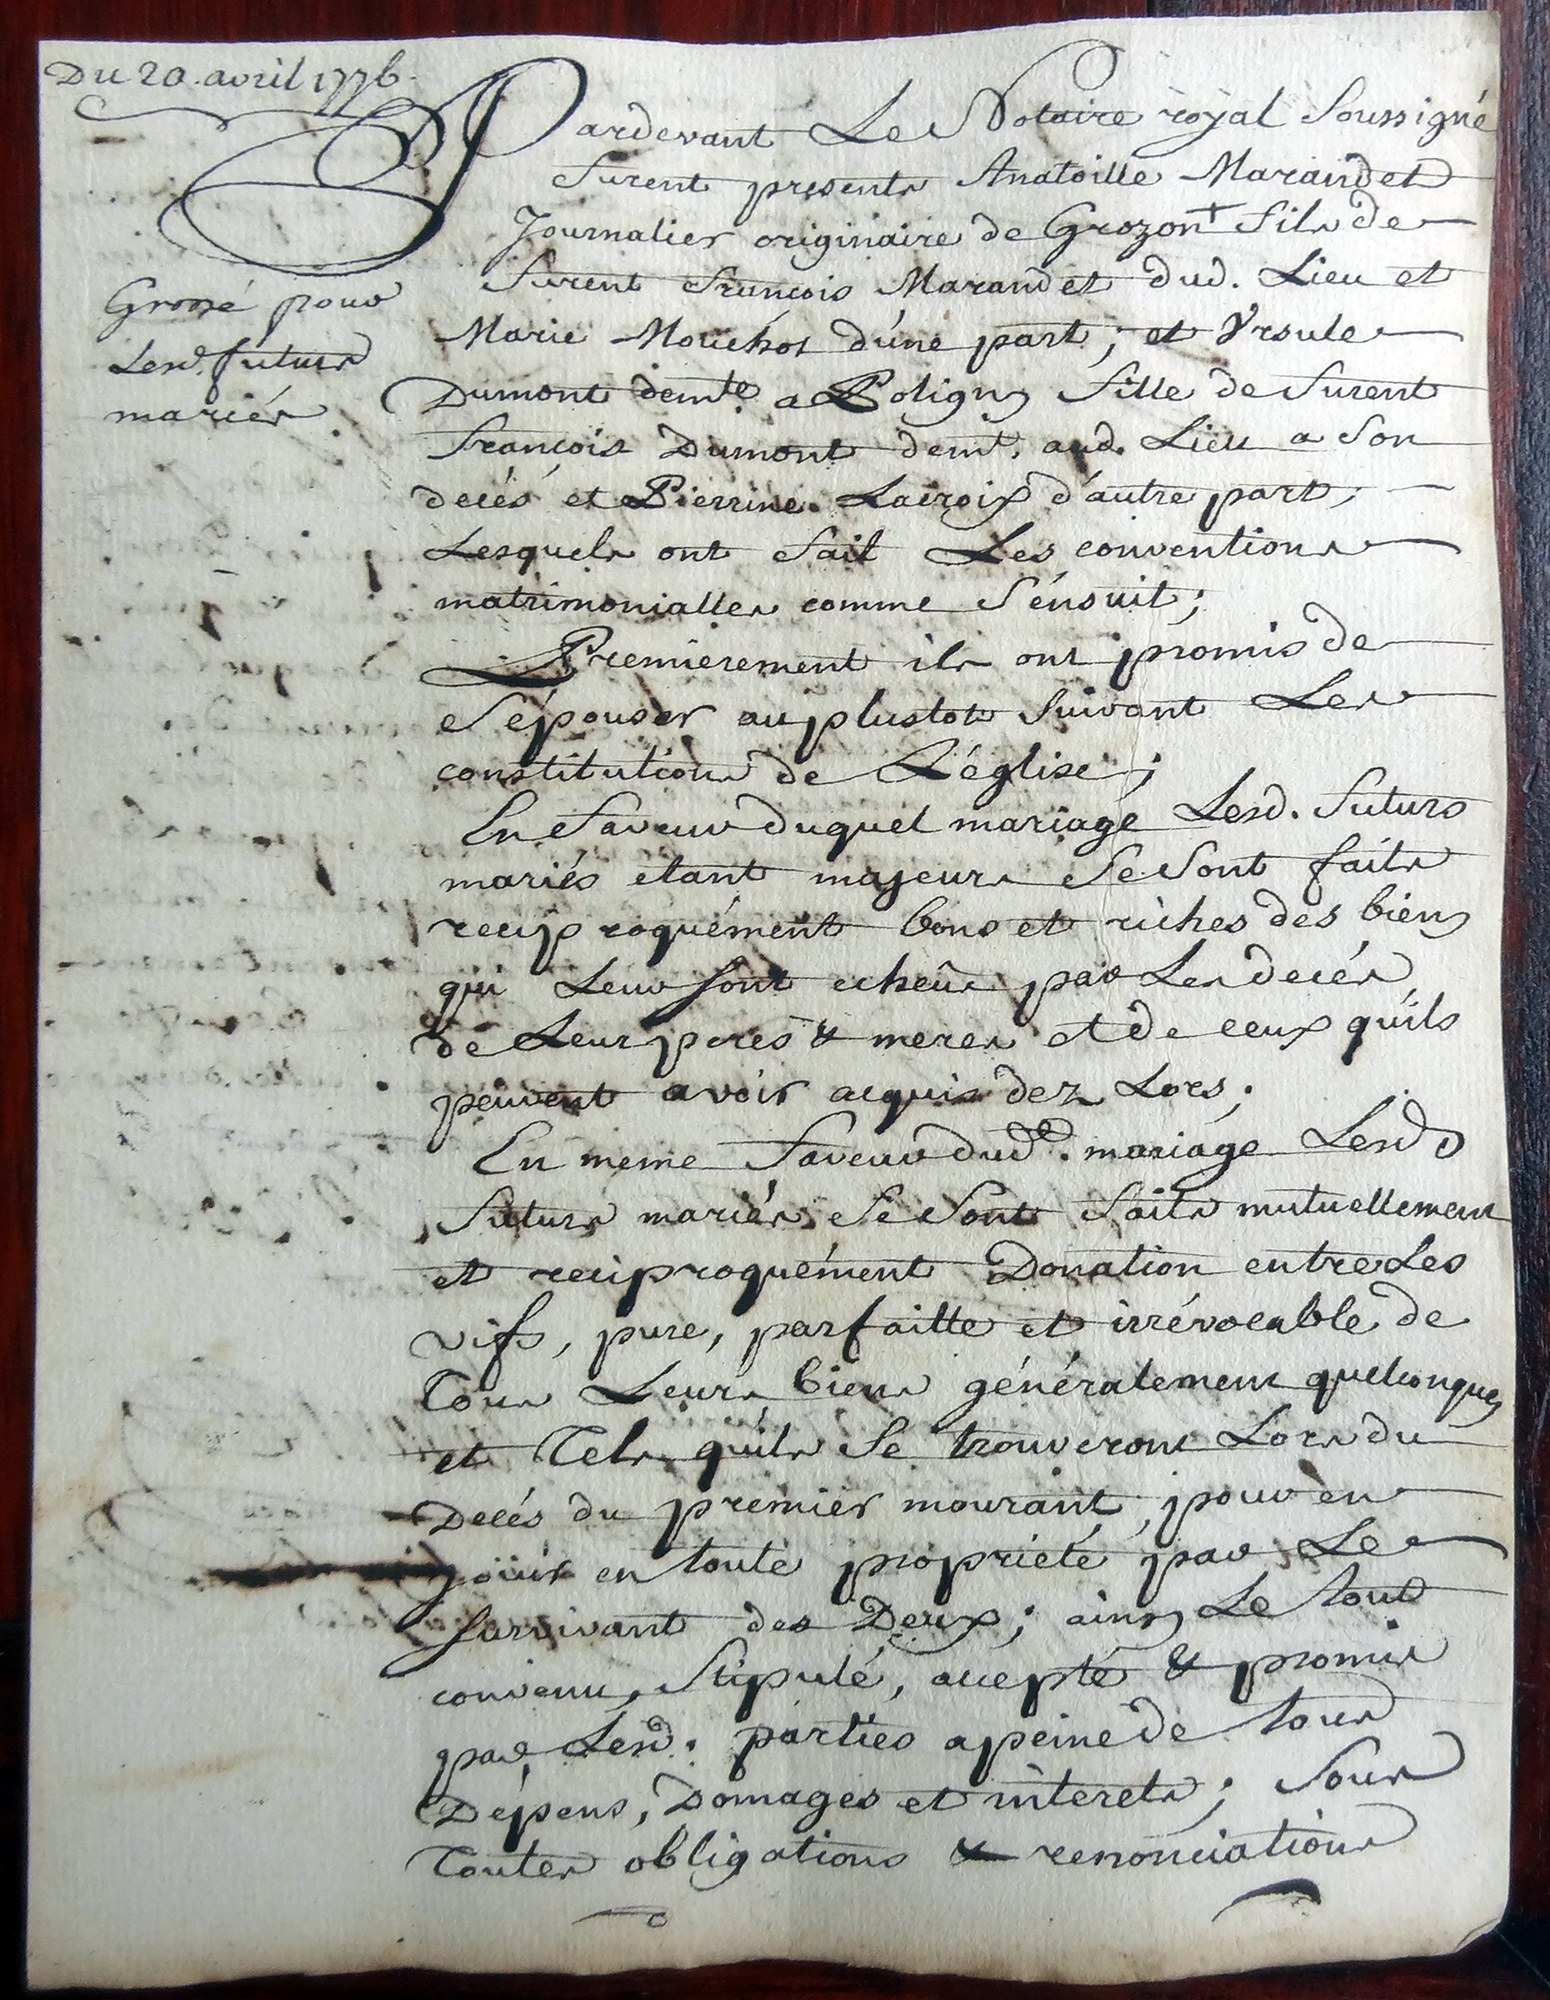 Du 20. avril 1776.
Pardevant Le Notaire royal Soussigné
Furent presents Anatoille Marandet
Journalier originaire de Grozon + fils de
Furent François Marandet dud. Lieu et
Marie Mouchot d'une part; et Ursule
Dumont demte. a Poligny fille de Furent
François Dumont demt. aud. Lieu a Son
decés et Pierrine Lacroix d'autre part,
Lesquels ont fait Les conventions
matrimonialles comme S'énsuit;
Premierement ils ont promis de
S'épouser au plustot Suivant Les
constitutions de L'église;
En faveur duquel mariage Lesd. futurs
mariés etant majeurs Se Sont faits
reciproquément bons et riches des biens
qui Leur Sont echeûs par Les decés
de Leur peres & meres et de ceux qu'ils
peuvent avoir acquis dez Lors;
En meme faveur dud. mariage Lesds
futurs mariés Se Sont faits mutuellement
et reciproquément Donation entre Les
vifs, pure, parfaitte et irrévocable de
Tous Leurs biens généralement quelconques
et Tels qu'ils Se trouveront Lors du
Decés du premier mourant, pour en
joüir en toute propriété par Le
Survivant des Deux; ainsy Le tout
convenu, Stipulé, accepté & promis
par Lesd. parties a peine de tous
Dépens, Domages et interets; Sous
Toutes obligations & renonciations
Grossé pour
Lesd. futurs
mariés